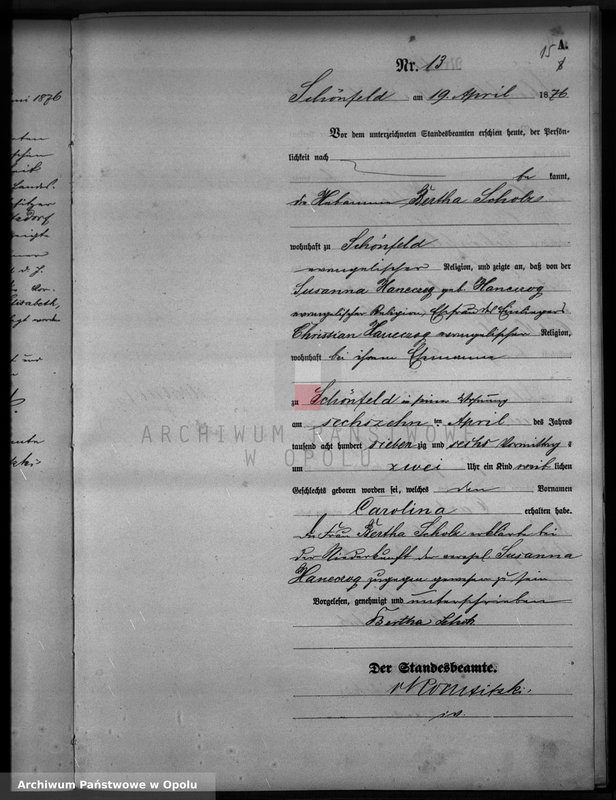 15 A.
Nr. 13
Schönfeld am 19 April 1876
Vor dem unterzeichneten Standesbeamten erschien heute, der Persön-
lichkeit nach
be kannt,
die Hebamme Bertha Scholz
wohnhaft zu Schönfeld
evangelischer Religion, und zeigte an, daß von der
Susanna Haneczog geb. Haneczog
evangelischer Religion, Ehefrau des Einliegers
Christian Haneczog evangelischer Religion,
wohnhaft bei ihrem Ehemanne
zu Schönfeld in seiner Wohnung
am sechszehn ten April des Jahres
tausend acht hundert sieben zig und sechs Vormittag s
um zwei Uhr ein Kind weib lichen
Geschlechts geboren worden sei, welches den Vornamen
Carolina erhalten habe.
Die Frau Bertha Scholz erklärte bei
der Niederkunft der verehel. Susanna
Haneczog zugegen gewesen zu sein
Vorgelesen, genehmigt und unterschrieben
Bertha Scholz
Der Standesbeamte.
i.v.
uni 1876
ARCHIWUM PAŃSTWOWE
W OPOLU
Archiwum Państwowe w Opolu